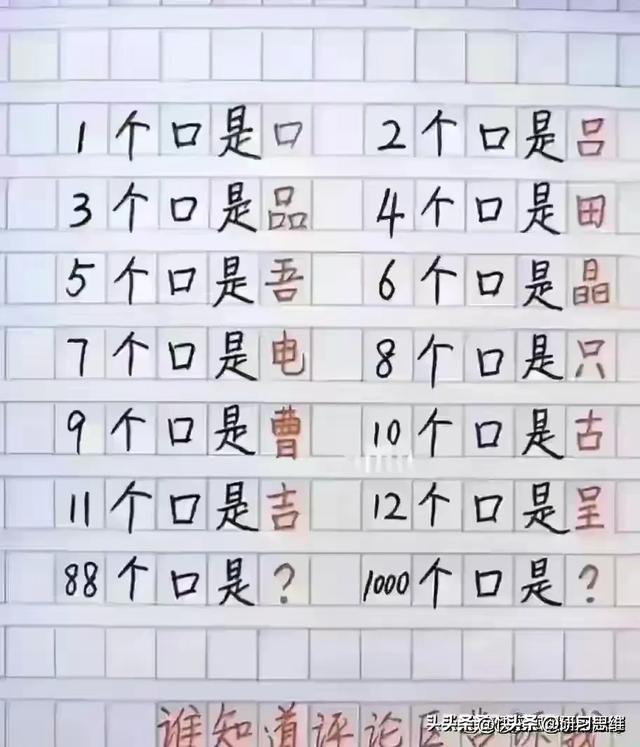 1个口是口 2个口是吕
3个口是品 4个口是田
5个口是吾 6个口是晶
7个口是电 8个口是只
9个口是曹 10个口是古
11个口是吉 12个口是呈
88个口是? 1000个口是?
谁知道评论区
头条 @研习思维